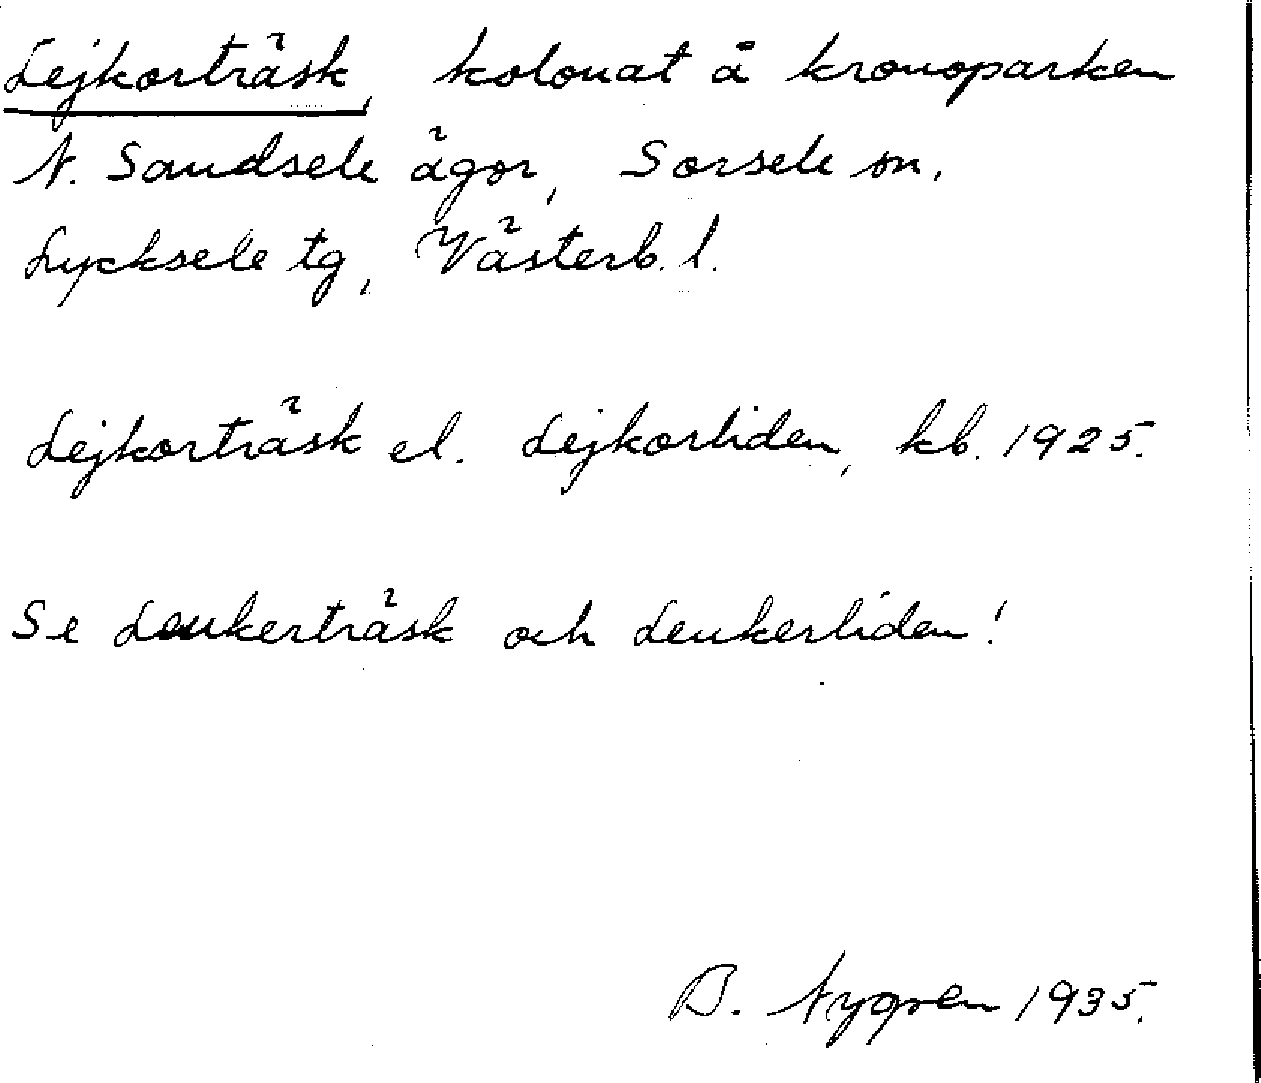 Lejkorträsk, kolonat å kronoparken
N. Sandsele ägor, Sorsele sn,
Lycksele tg, Västerb. l.
Lejkorträsk el. Lejkorliden, kb. 1925.
Se Leukerträsk och Leukerliden!
B. Nygren 1935.